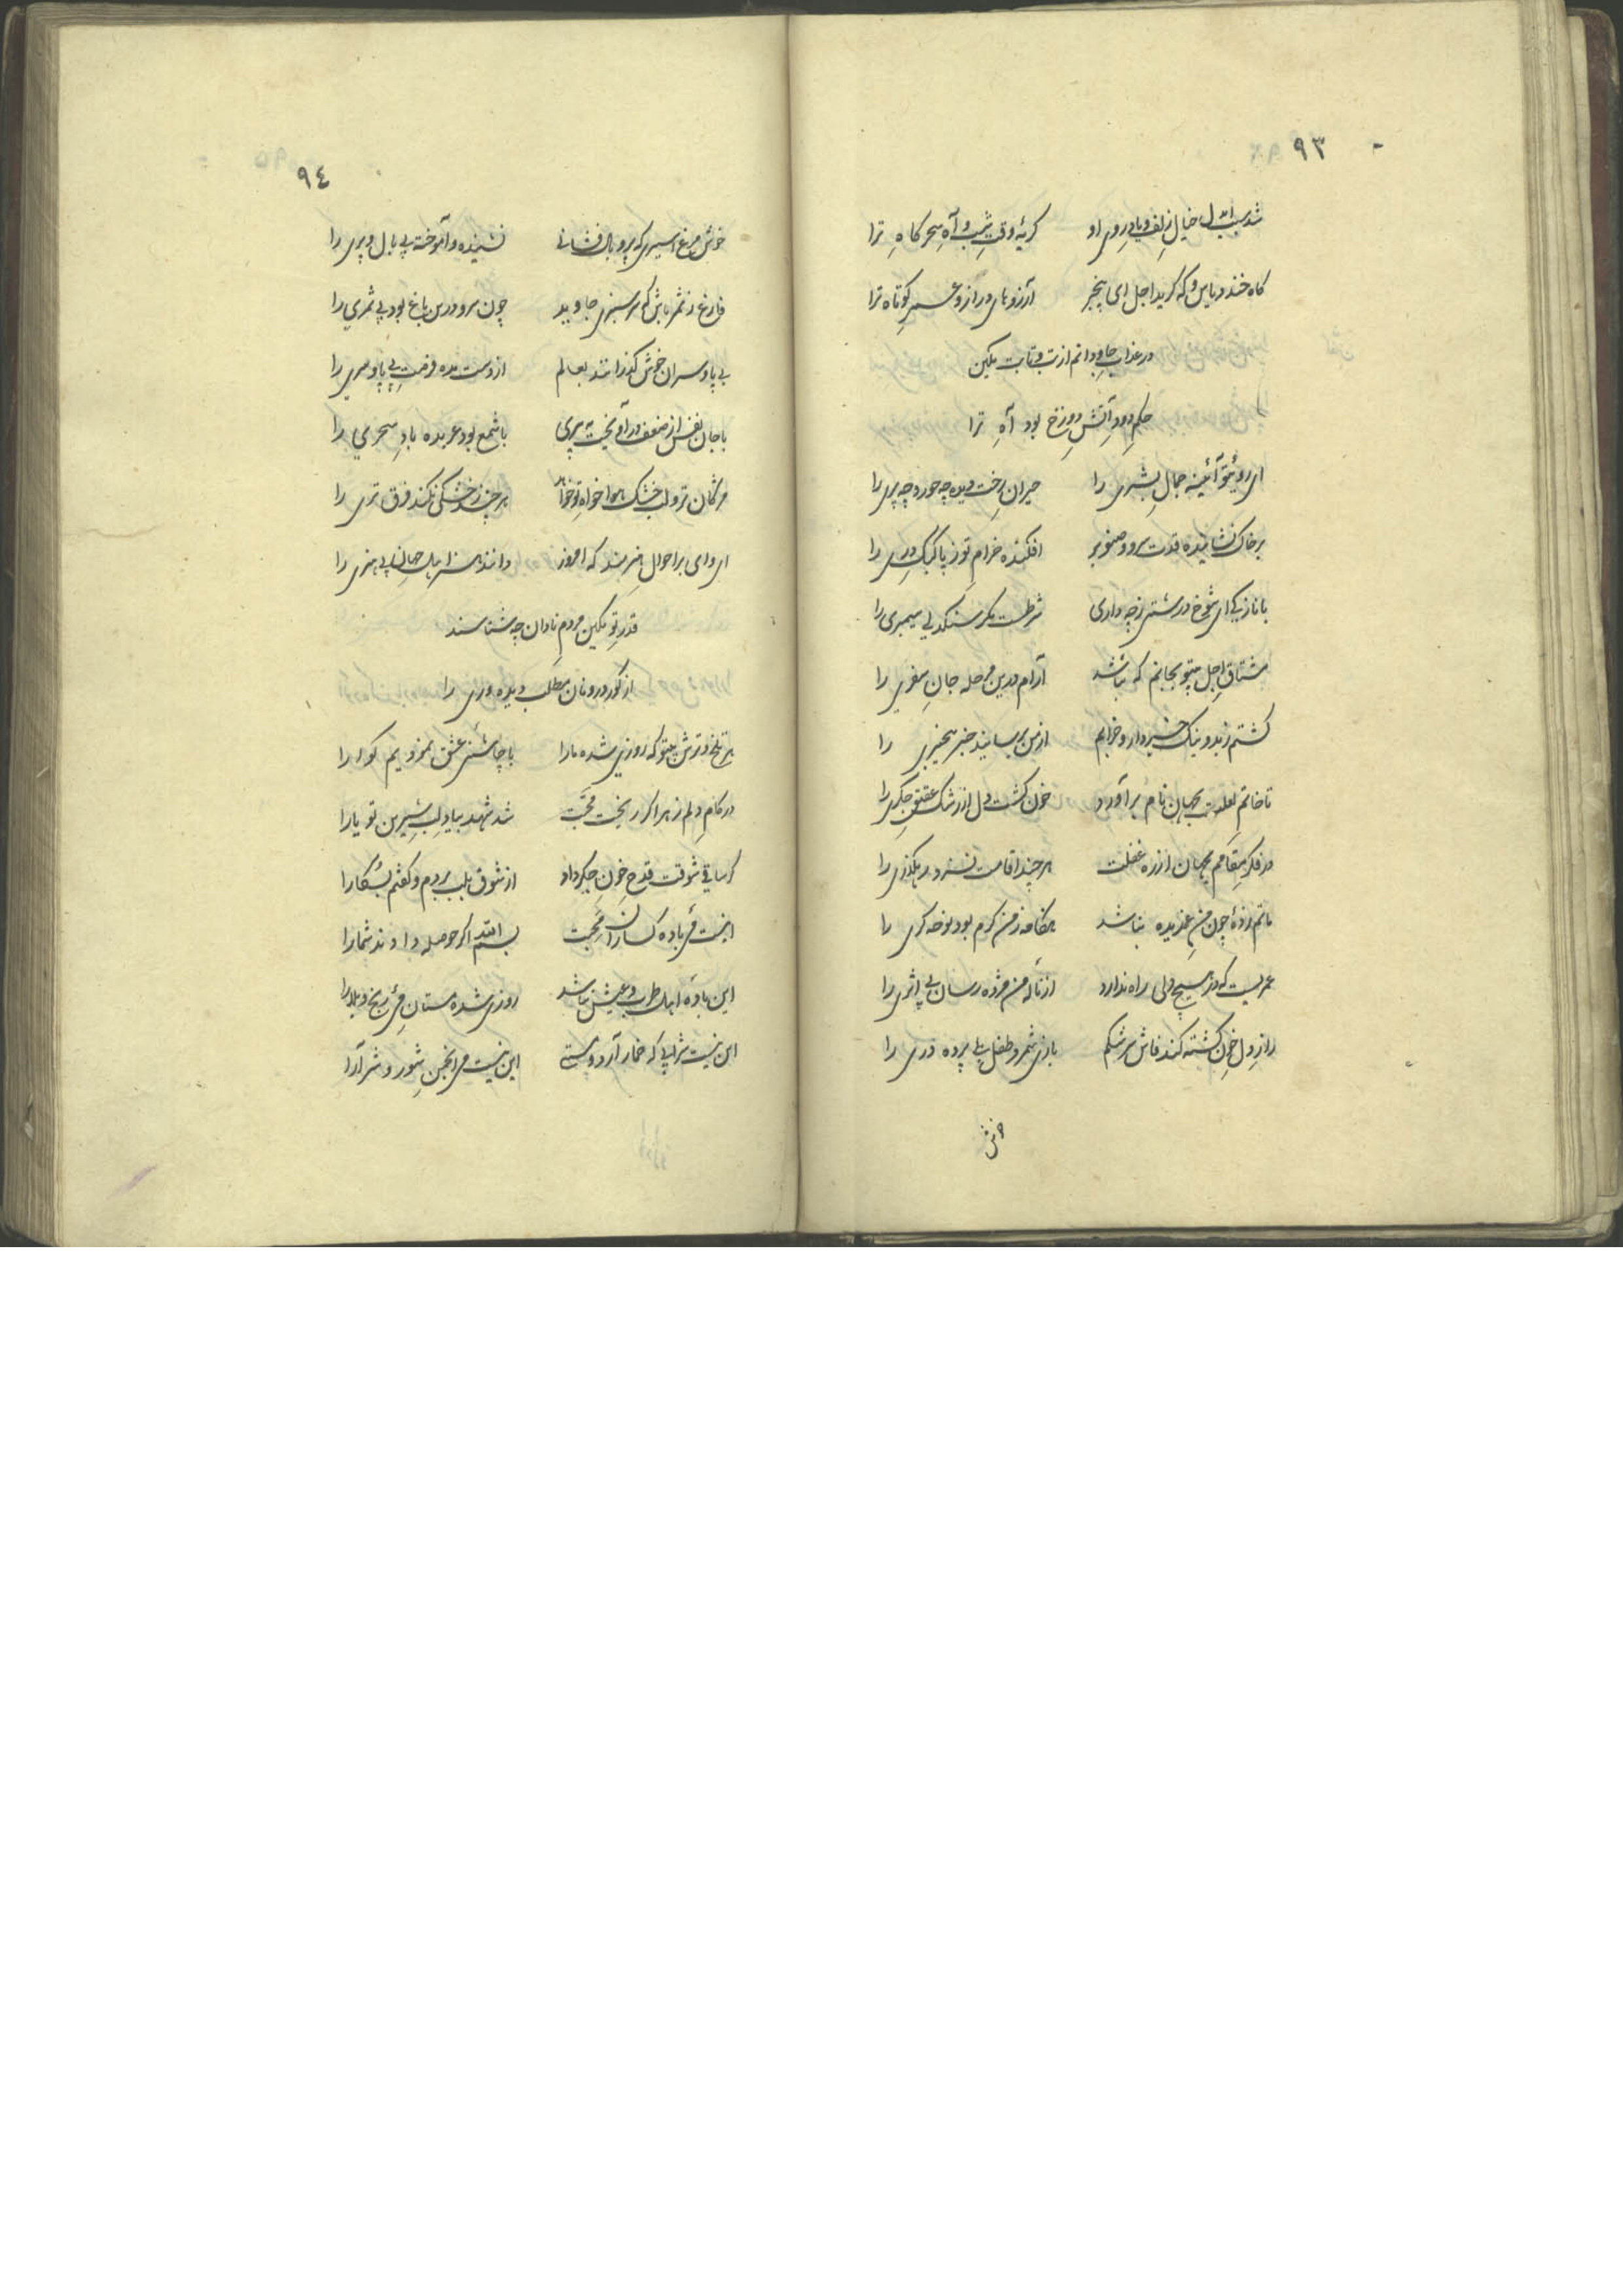 ٩٣
شد سبب ای دل خیال زلف و یاد روی او گریهٔ وقت شب و آه سحر کاهِ ترا
کاه خندد یاس و که کرید اجل ای بیخبر آرزوهای دراز و عمر کوتاه ترا
در عذاب جاودانم از تب و تابت مکین
حکم دود آتش دوزخ بود آهِ ترا
ای روی تو آئینه جمال بشری را حیران رخت دیده چه حور و چه پری را
بر خاک نشانیده قدت سرو و صنوبر افکنده خرام تو ز پا کبک دری را
با نازکی ای شوخ درشتی ز چه داری شرطست مکر سنکدلی سیمبری را
مشتاق اجل بیتو بجانم که نباشد آرام درین مرحله جان سفری را
کشتم ز بد و نیک خبردار و خرابم از من برسانید خبر بیخبری را
تا خاتم لعلت بجهان نام برآورد خون کشت دل از رشک عقیق جکری را
در فکر مقامم بجهان از ره غفلت هر چند اقامت نسزد رهکذری را
ماتم زدهٔ چون من غمدیده نباشد هنکامه ز من کرم بود نوحه کری را
عمریست که در هیچ دلی راه ندارد از ناله من مژده رسان بی اثری را
راز دل خون کشته کند فاش سرشکم بازی شمرد طفل بلی پرده دری را
خوش
٩٤
خوش مرغ اسیری که پر و بال فشانی نشنیده و آموخته بی بال و پری را
فارغ ز ثمر باش که سرسبزی جاوید چون سرو درین باغ بود بی ثمری را
بی پا و سران خوش کذرانند بعالم از دست مده فرصت بی پا و سری را
با جان نفس از ضعف درآویخت به پیری با شمع بود عربده باد سحری را
مژکان تر و لب خشک هواخواه تو خواهم هر چند ز خشکی نکند فرق تری را
ای وای بر احوال هنرمند که امروز دانند هنر اهل جهان بی هنری را
قدر تو مکین مردم نادان چه شناسند
از کور درونان مطلب دیده وری را
هر تلخ و ترش بیتو که روزی شده ما را با چاشنی عشق نمودیم کوارا
در کام دلم زهر اکر ریخت محبت شد شهد بیاد لب شیرین تو یارا
کر ساقی شوقت قدح خون جکر داد از شوق بلب بردم و کفتم بسکارا
اینست می باده کساران محبت بسم الله اکر حوصله دادند شما را
این بادهٔ اهل طرب و عیش نباشد روزی شده مستان می رنج و بلا را
این نیست شرابی که خمار آرد و مستی این نیست می انجمن شور و شر آرا